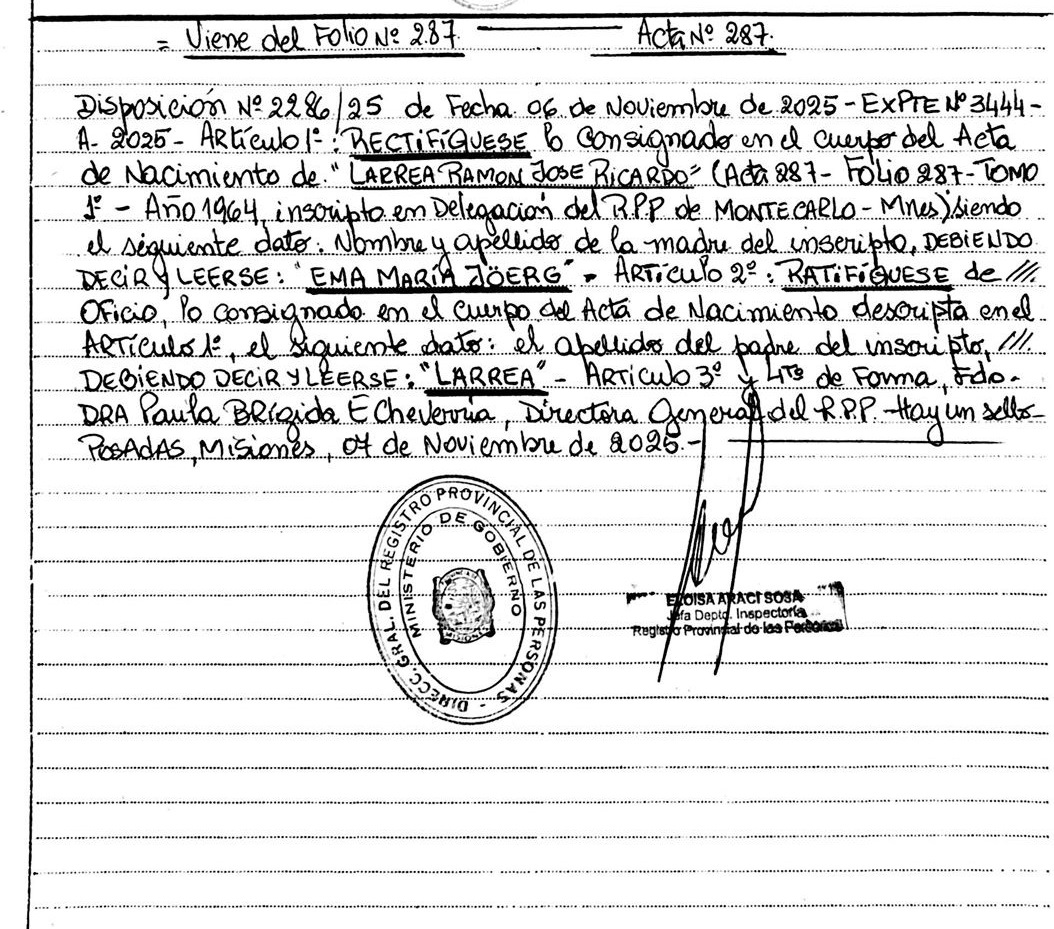 = Viene del Folio Nº 287. Acta Nº 287.
Disposición Nº 2286/25 de Fecha 06 de Noviembre de 2025 - EXPTE Nº 3444-
A- 2025 - Artículo 1º: RECTIFÍQUESE lo consignado en el cuerpo del Acta
de Nacimiento de "LARREA RAMON JOSE RICARDO" (Acta 287 - FOLIO 287 - TOMO
1º - Año 1964, inscripto en Delegación del R.P.P de MONTECARLO - Mnes) siendo
el siguiente dato: Nombre y apellido de la madre del inscripto, DEBIENDO
DECIR Y LEERSE: "EMA MARÍA JÖERG" - ARTÍCULO 2º: RATIFÍQUESE de ///.
Oficio, lo consignado en el cuerpo del Acta de Nacimiento descripta en el
ARTÍCULO 1º, el siguiente dato: el apellido del padre del inscripto, ///.
DEBIENDO DECIR Y LEERSE: "LARREA" - ARTÍCULO 3º y 4TO de Forma, Fdo.
DRA Paula BRÍGIDA ECheverría, Directora General del R.P.P. - Hay un sello-
POSADAS, Misiones, 07 de Noviembre de 2025.-
DIRECC. GRAL. DEL REGISTRO PROVINCIAL DE LAS PERSONAS
MINISTERIO DE GOBIERNO
ELOISA ARACI SOSA
Jefa Depto. Inspectoría
Registro Provincial de las Personas